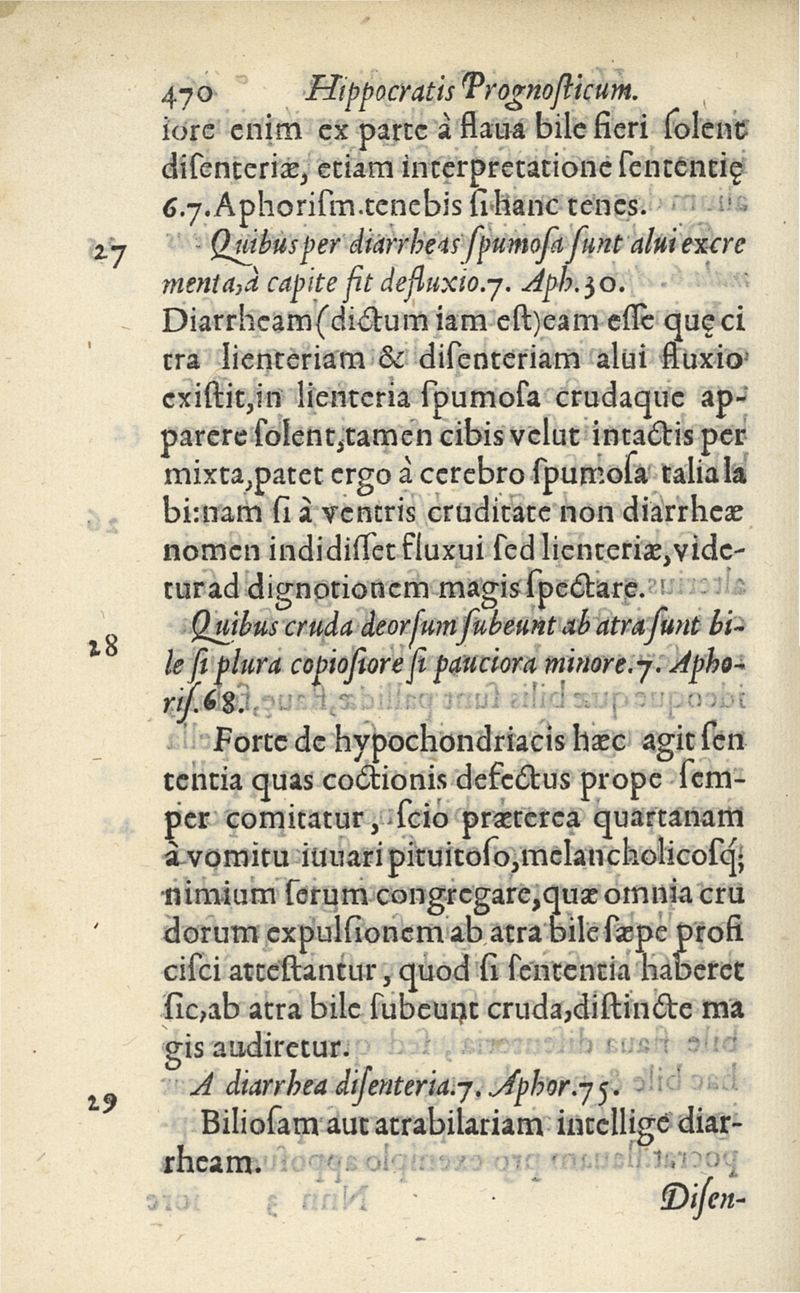 470 Hippocratis Prognoſticum.
iore enim ex parte à flaua bile fieri ſolent
diſenteriæ, etiam interpretatione ſententię
6.7.Aphoriſm.tenebis ſi hanc tenes.
27 Quibus per diarrheas ſpumoſa ſunt alui excre
menta,à capite fit defluxio.7. Aph.30.
Diarrheam(dictum iam eſt)eam eſſe quę ci
tra lienteriam & diſenteriam alui fluxio
exiſtit,in lienteria ſpumoſa crudaque ap-
parere ſolent,tamen cibis velut intactis per
mixta,patet ergo à cerebro ſpumoſa talia la
bi:nam ſi à ventris cruditate non diarrheæ
nomen indidiſſet fluxui ſed lienteriæ,vide-
tur ad dignotionem magis ſpectare.
28 Quibus cruda deorſum ſubeunt ab atra ſunt bi-
le ſi plura copioſiore ſi pauciora minore.7. Apho-
riſ.68.
Forte de hypochondriacis hæc agit ſen
tentia quas coctionis defectus prope ſem-
per comitatur, ſcio præterea quartanam
à vomitu iuuari pituitoſo,melancholicoſq́;
nimium ſerum congregare,quæ omnia cru
dorum expulſionem ab atra bile ſæpe profi
ciſci atteſtantur, quod ſi ſententia haberet
ſic,ab atra bile ſubeunt cruda,diſtincte ma
gis audiretur.
29 A diarrhea diſenteria.7. Aphor.75.
Bilioſam aut atrabilariam intellige diar-
rheam.
Diſen-